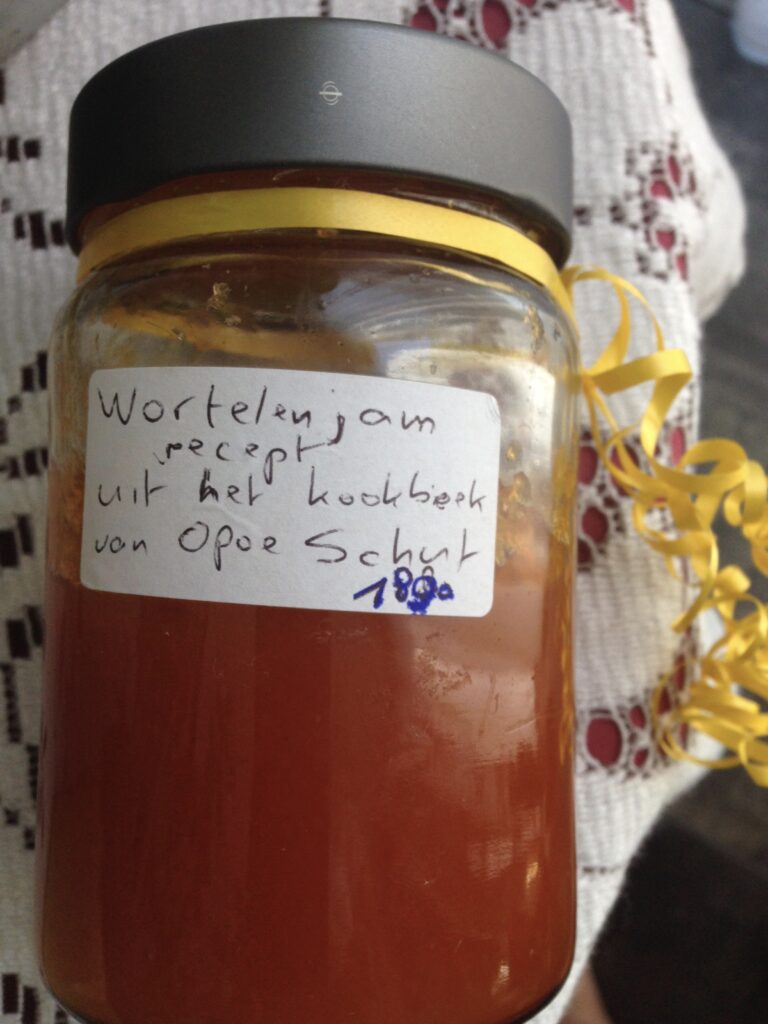 Wortelen jam
recept
uit het kookboek
van Opoe Schut